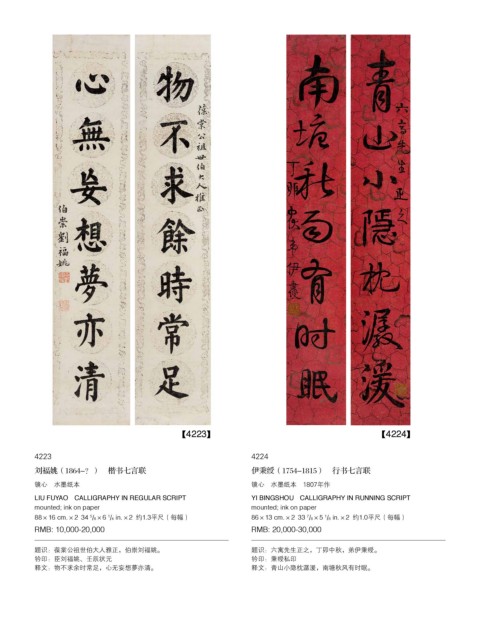 物不求餘時常足
葆棠公祖世伯大人雅正
心無妄想夢亦清
伯崇劉福姚
青山小隱枕潺湲
南垞秋雨有时眠
【4223】
【4224】
4223
刘福姚（1864–？） 楷书七言联
镜心 水墨纸本
LIU FUYAO CALLIGRAPHY IN REGULAR SCRIPT
mounted; ink on paper
88×16 cm.×2 34 5/8×6 1/4 in.×2 约1.3平尺（每幅）
RMB: 10,000-20,000
题识：葆棠公祖世伯大人雅正。伯崇刘福姚。
钤印：臣刘福姚、壬辰状元
释文：物不求余时常足，心无妄想夢亦清。
4224
伊秉绶（1754–1815） 行书七言联
镜心 水墨纸本 1807年作
YI BINGSHOU CALLIGRAPHY IN RUNNING SCRIPT
mounted; ink on paper
86×13 cm.×2 33 7/8×5 1/8 in.×2 约1.0平尺（每幅）
RMB: 20,000-30,000
先生正之。丁卯中秋，弟伊秉绶。
钤印：秉绶私印
释文：青山小隐枕潺湲，南塘秋风有时眠。